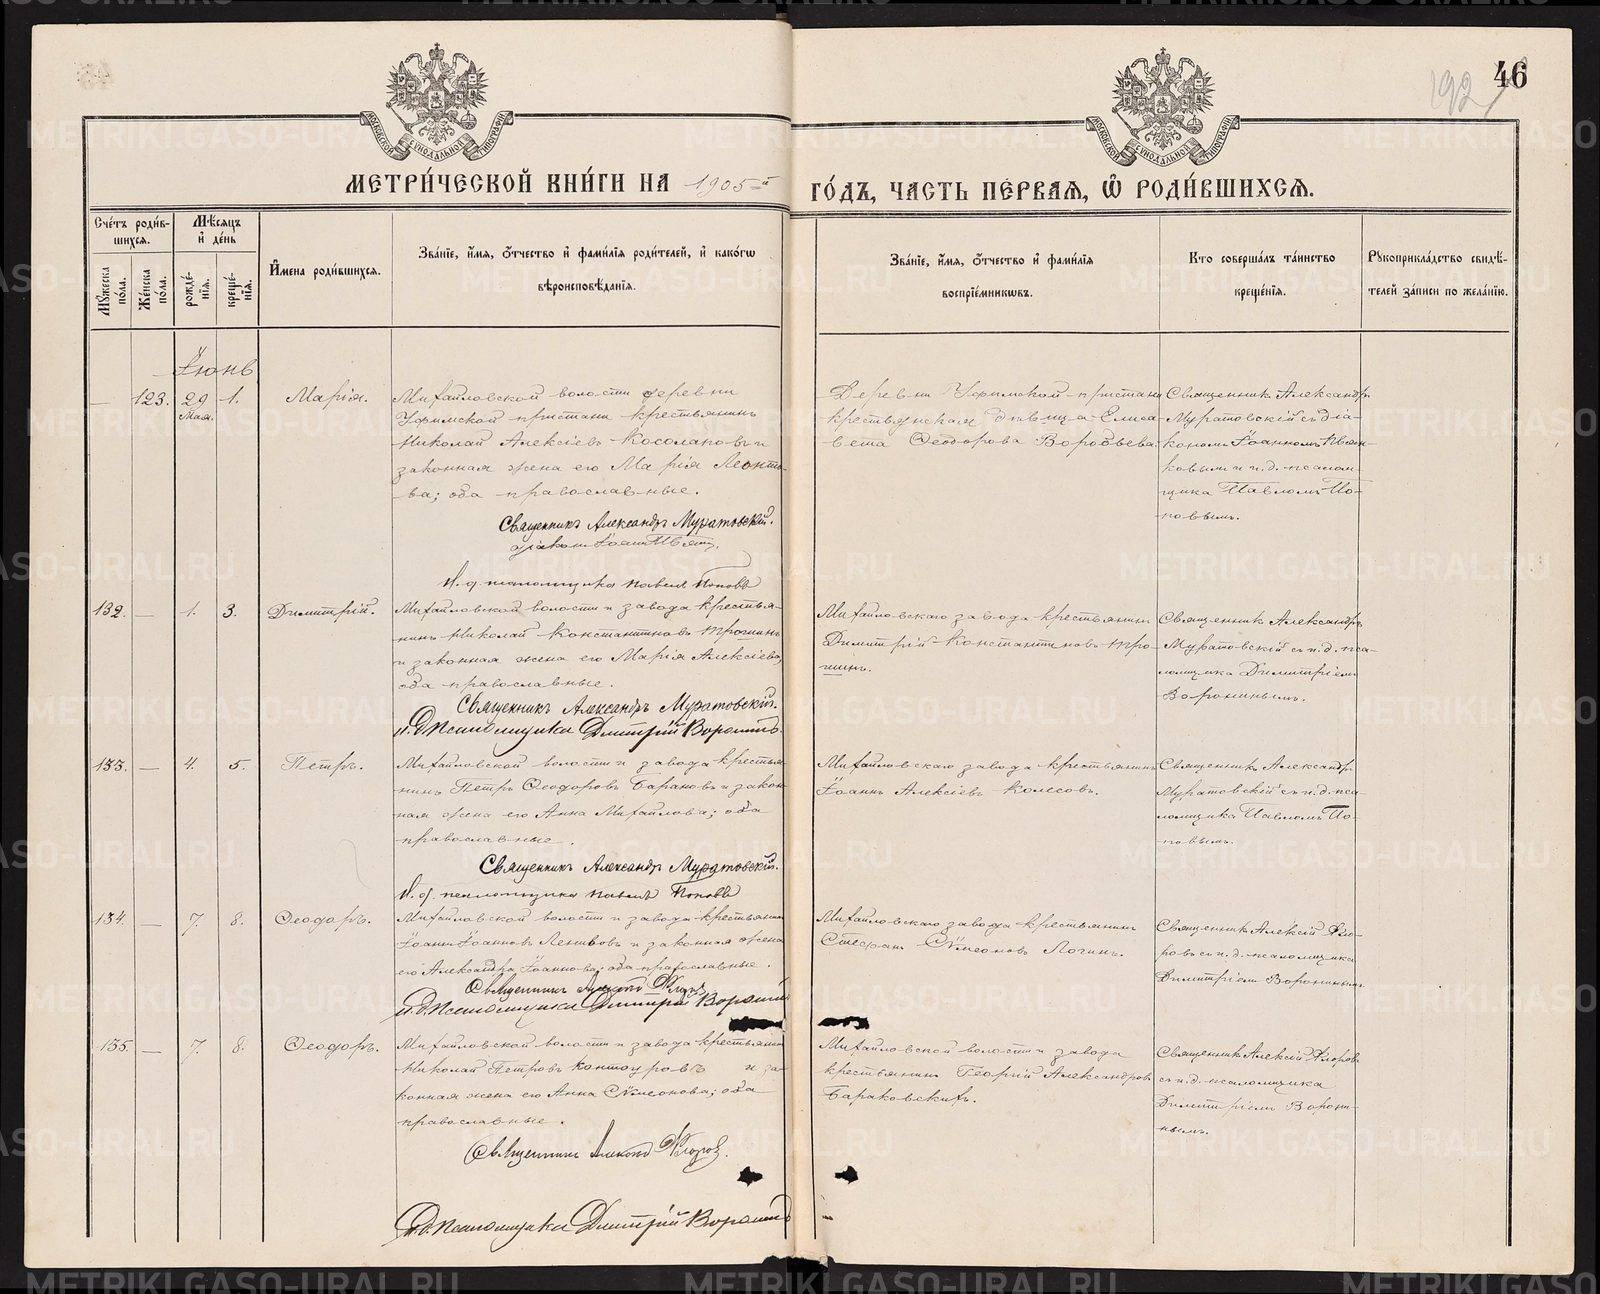 46
192
МОСКОВСКОЙ СУНОДАЛЬНОЙ ТИПОГРАФІИ
МОСКОВСКОЙ СУНОДАЛЬНОЙ ТИПОГРАФІИ
МЕТРИ́ЧЕСКОЙ КНИ́ГИ НА 1905=й ГО́ДЪ, ЧАСТЬ ПЕ́РВАЯ, Ѽ РОДИ́ВШИХСЯ.
Сче́тъ роди́в-
шихся.
Мѣ́сяцъ
и́ де́нь
Мꙋ́жеска по́ла.
Же́нска по́ла.
рожде́-
нїя.
креще́-
нїя.
И҆мена роди́вшихся.
Зва́нїе, и҆́мя, о҆́тчество и҆ фами́лїя роди́телей, и҆ како́гѡ
вѣроисповѣ́данїя.
Зва́нїе, и҆́мя, о҆́тчество и҆ фами́лїя
воспрїе́мникѡвъ.
Кто соверша́лъ та́инство
креще́нїя.
Рꙋкоприкла́дство свидѣ́-
телей за́писи по жела́нїю.
Іюнь
— 123. 29 1. Марія.
Мая.
Михайловской волости деревни
Уфимской пристани крестьянинъ
Николай Алексіевъ Косолаповъ и
законная жена его Марія Леонть-
ва; оба православные.
Священникъ Александръ Муратовскій.
И. д. псаломщика Павелъ Поповъ
Деревни Уфимской пристани
крестьянская дѣвица Елиса-
вета Ѳеодорова Воробьева.
Священникъ Александръ
Муратовскій съ діа-
кономъ Іоанномъ
ковымъ и и. д. псалом-
щика Павломъ По-
повымъ.
132. — 1. 3. Димитрій.
Михайловской волости и завода крестья-
нинъ Николай Константиновъ Трошинъ
и законная жена его Марія Алексіева,
оба православные.
Священникъ Александръ Муратовскій.
И. д. псаломщика Дмитрій Воронинъ
Михайловскаго завода крестьянинъ
Димитрій Константиновъ Тро-
шинъ.
Священникъ Александръ
Муратовскій съ и. д. пса-
ломщика Димитріемъ
Воронинымъ.
133. — 4. 5. Петръ.
Михайловской волости и завода крестья-
нинъ Петръ Ѳеодоровъ Барановъ и закон-
ная жена его Анна Михайлова; оба
православные.
Священникъ Александръ Муратовскій.
И. д. псаломщика Павелъ Поповъ
Михайловскаго завода крестьянинъ
Іоаннъ Алексіевъ Колесовъ.
Священникъ Александръ
Муратовскій съ и. д. пса-
ломщика Павломъ По-
повымъ.
134. — 7. 8. Ѳеодоръ.
Михайловской волости и завода крестьянинъ
Іоаннъ Іоанновъ и законная жена
его Александра Іоаннова; оба православные.
Священникъ Алексій Флоровъ
И. д. псаломщика Дмитрій Воронинъ
Михайловскаго завода крестьянинъ
Стефанъ Сѵмеоновъ Логинъ.
Священникъ Алексій Фло-
ровъ съ и. д. псаломщика
Димитріемъ Воронинымъ
135. — 7. 8. Ѳеодоръ.
Михайловской волости и завода крестьянинъ
Николай Петровъ Контоуровъ и за-
конная жена его Анна Сѵмеонова; оба
православные.
Священникъ Алексій Флоровъ.
И. д. псаломщика Дмитрій Воронинъ
Михайловской волости и завода
крестьянинъ Георгій Александровъ
Бараковскихъ.
Священникъ Алексій Флоровъ
съ и. д. псаломщика
Димитріемъ Ворони-
нымъ.
METRIKI.GASO-URAL.RU